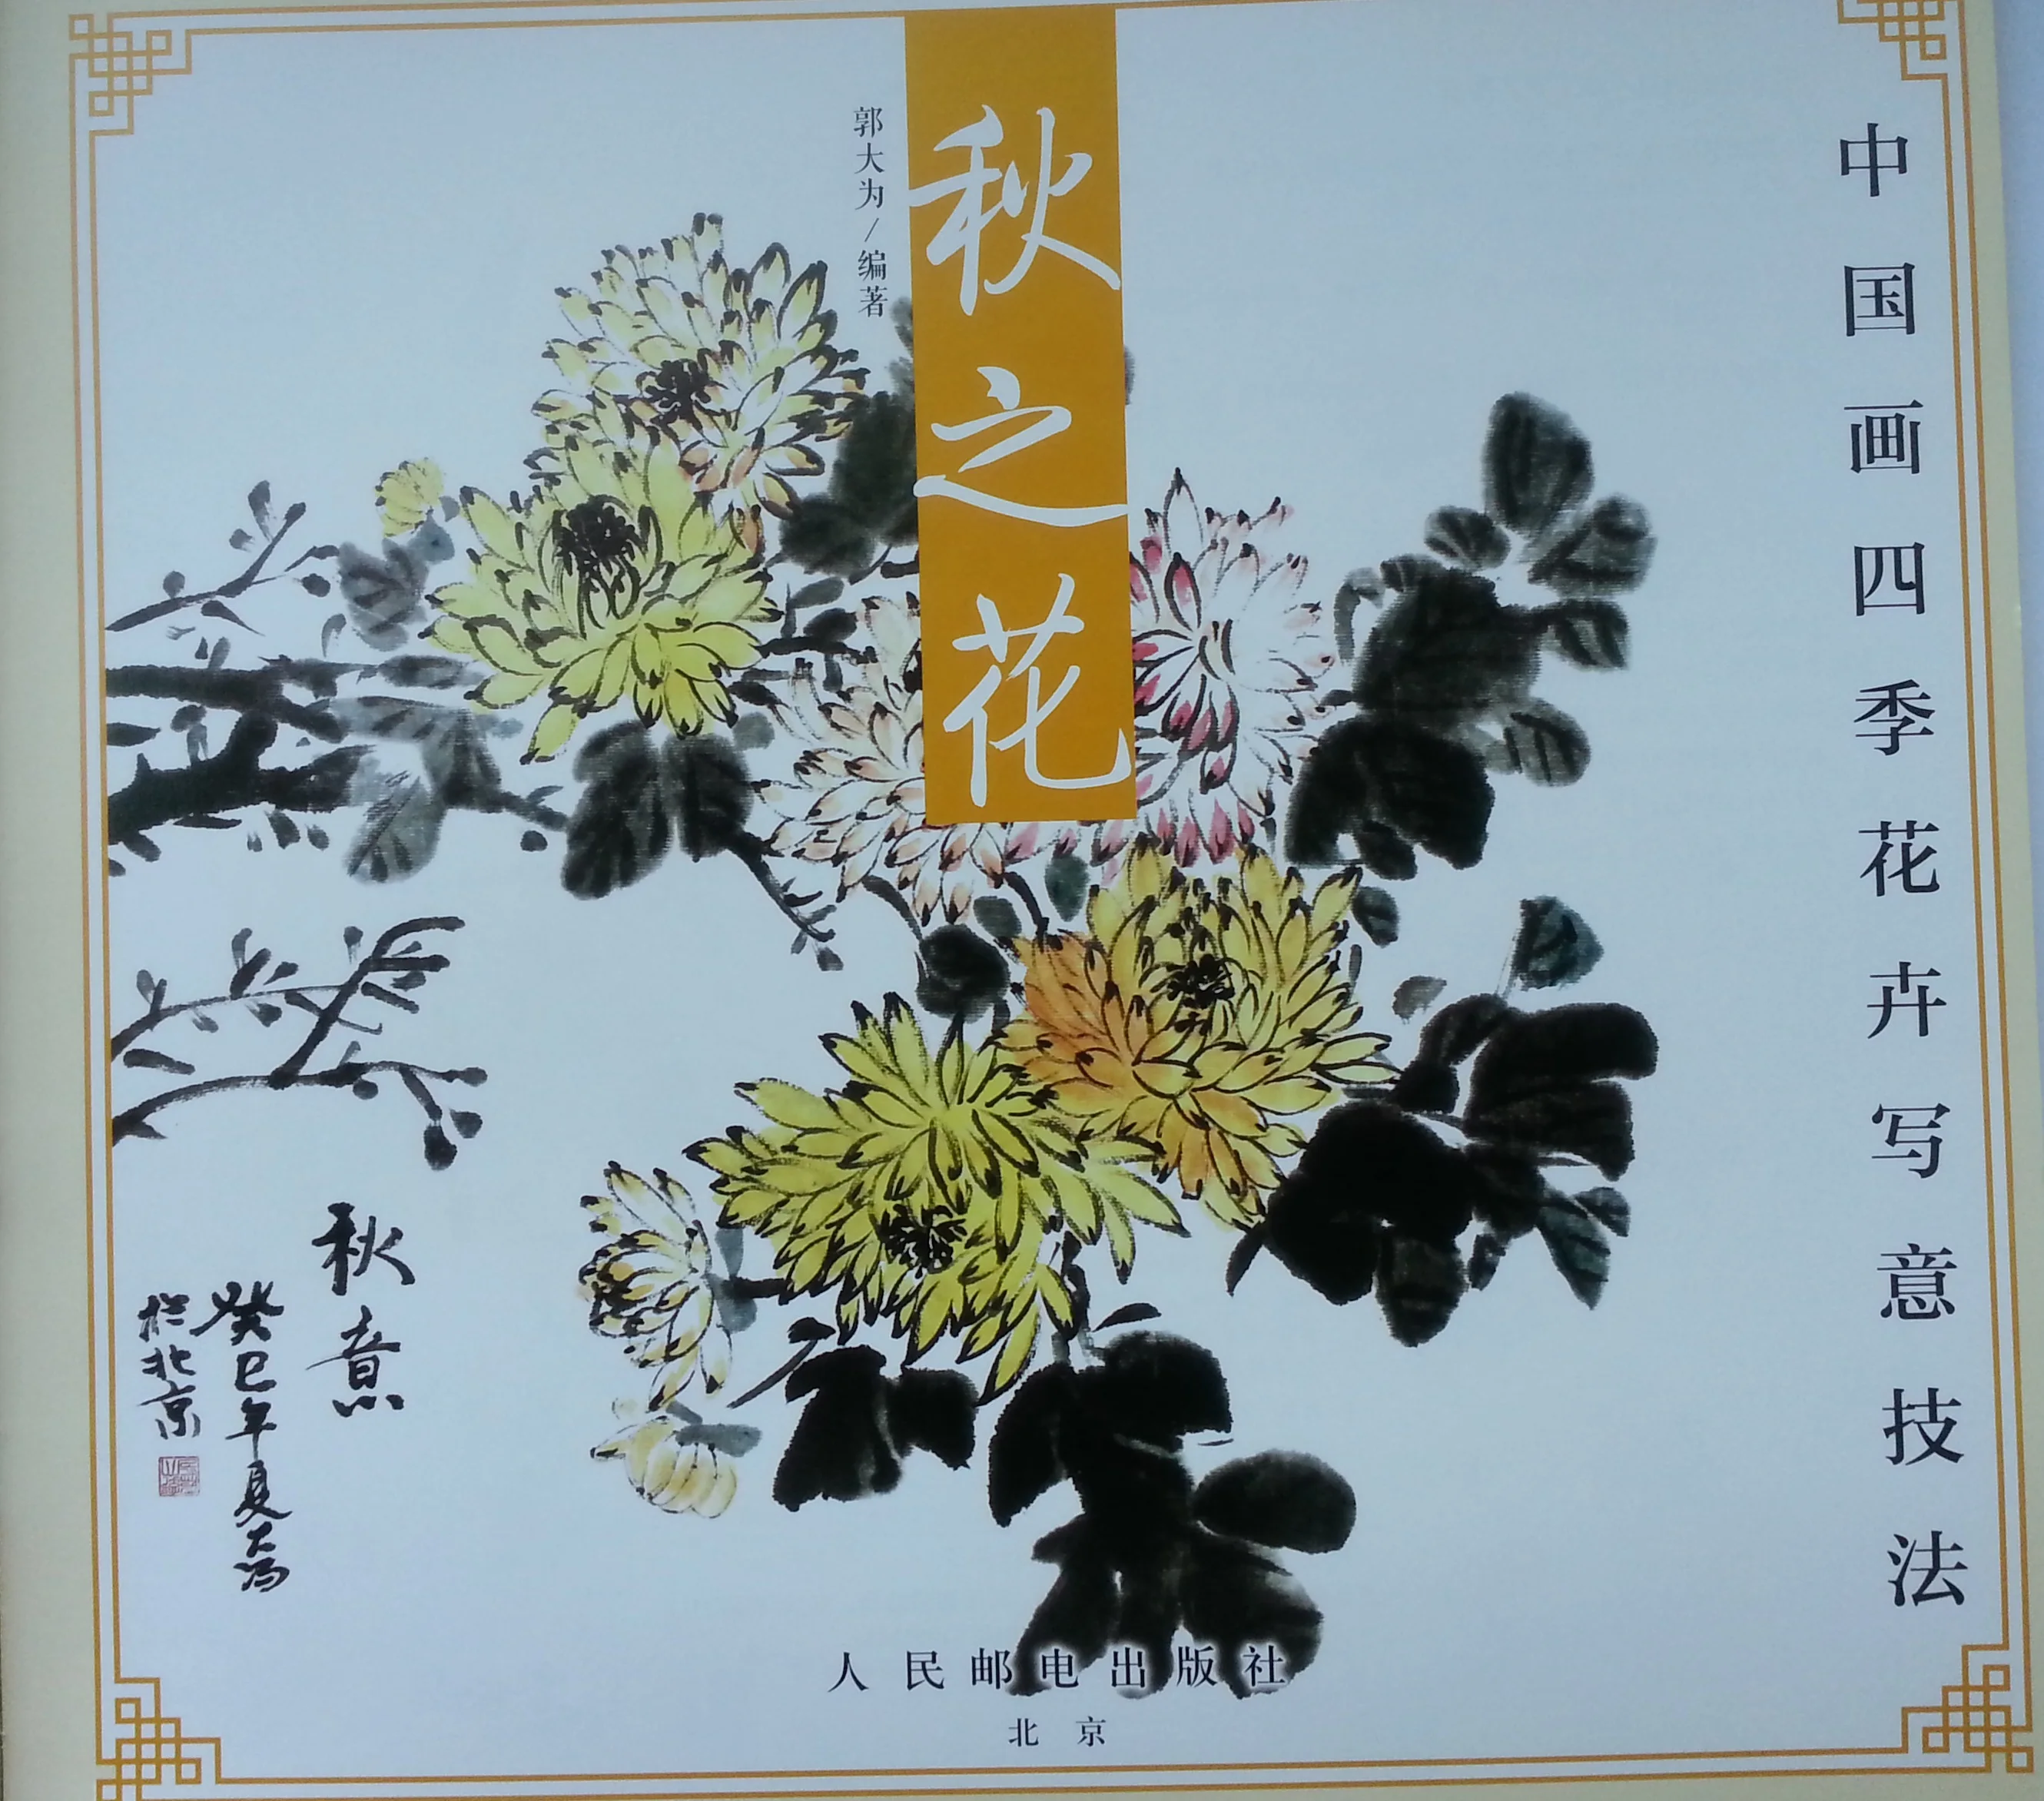 中国画四季花卉写意技法
秋之花
郭大为/编著
秋意
癸巳年夏大为
于北京
人民邮电出版社
北京